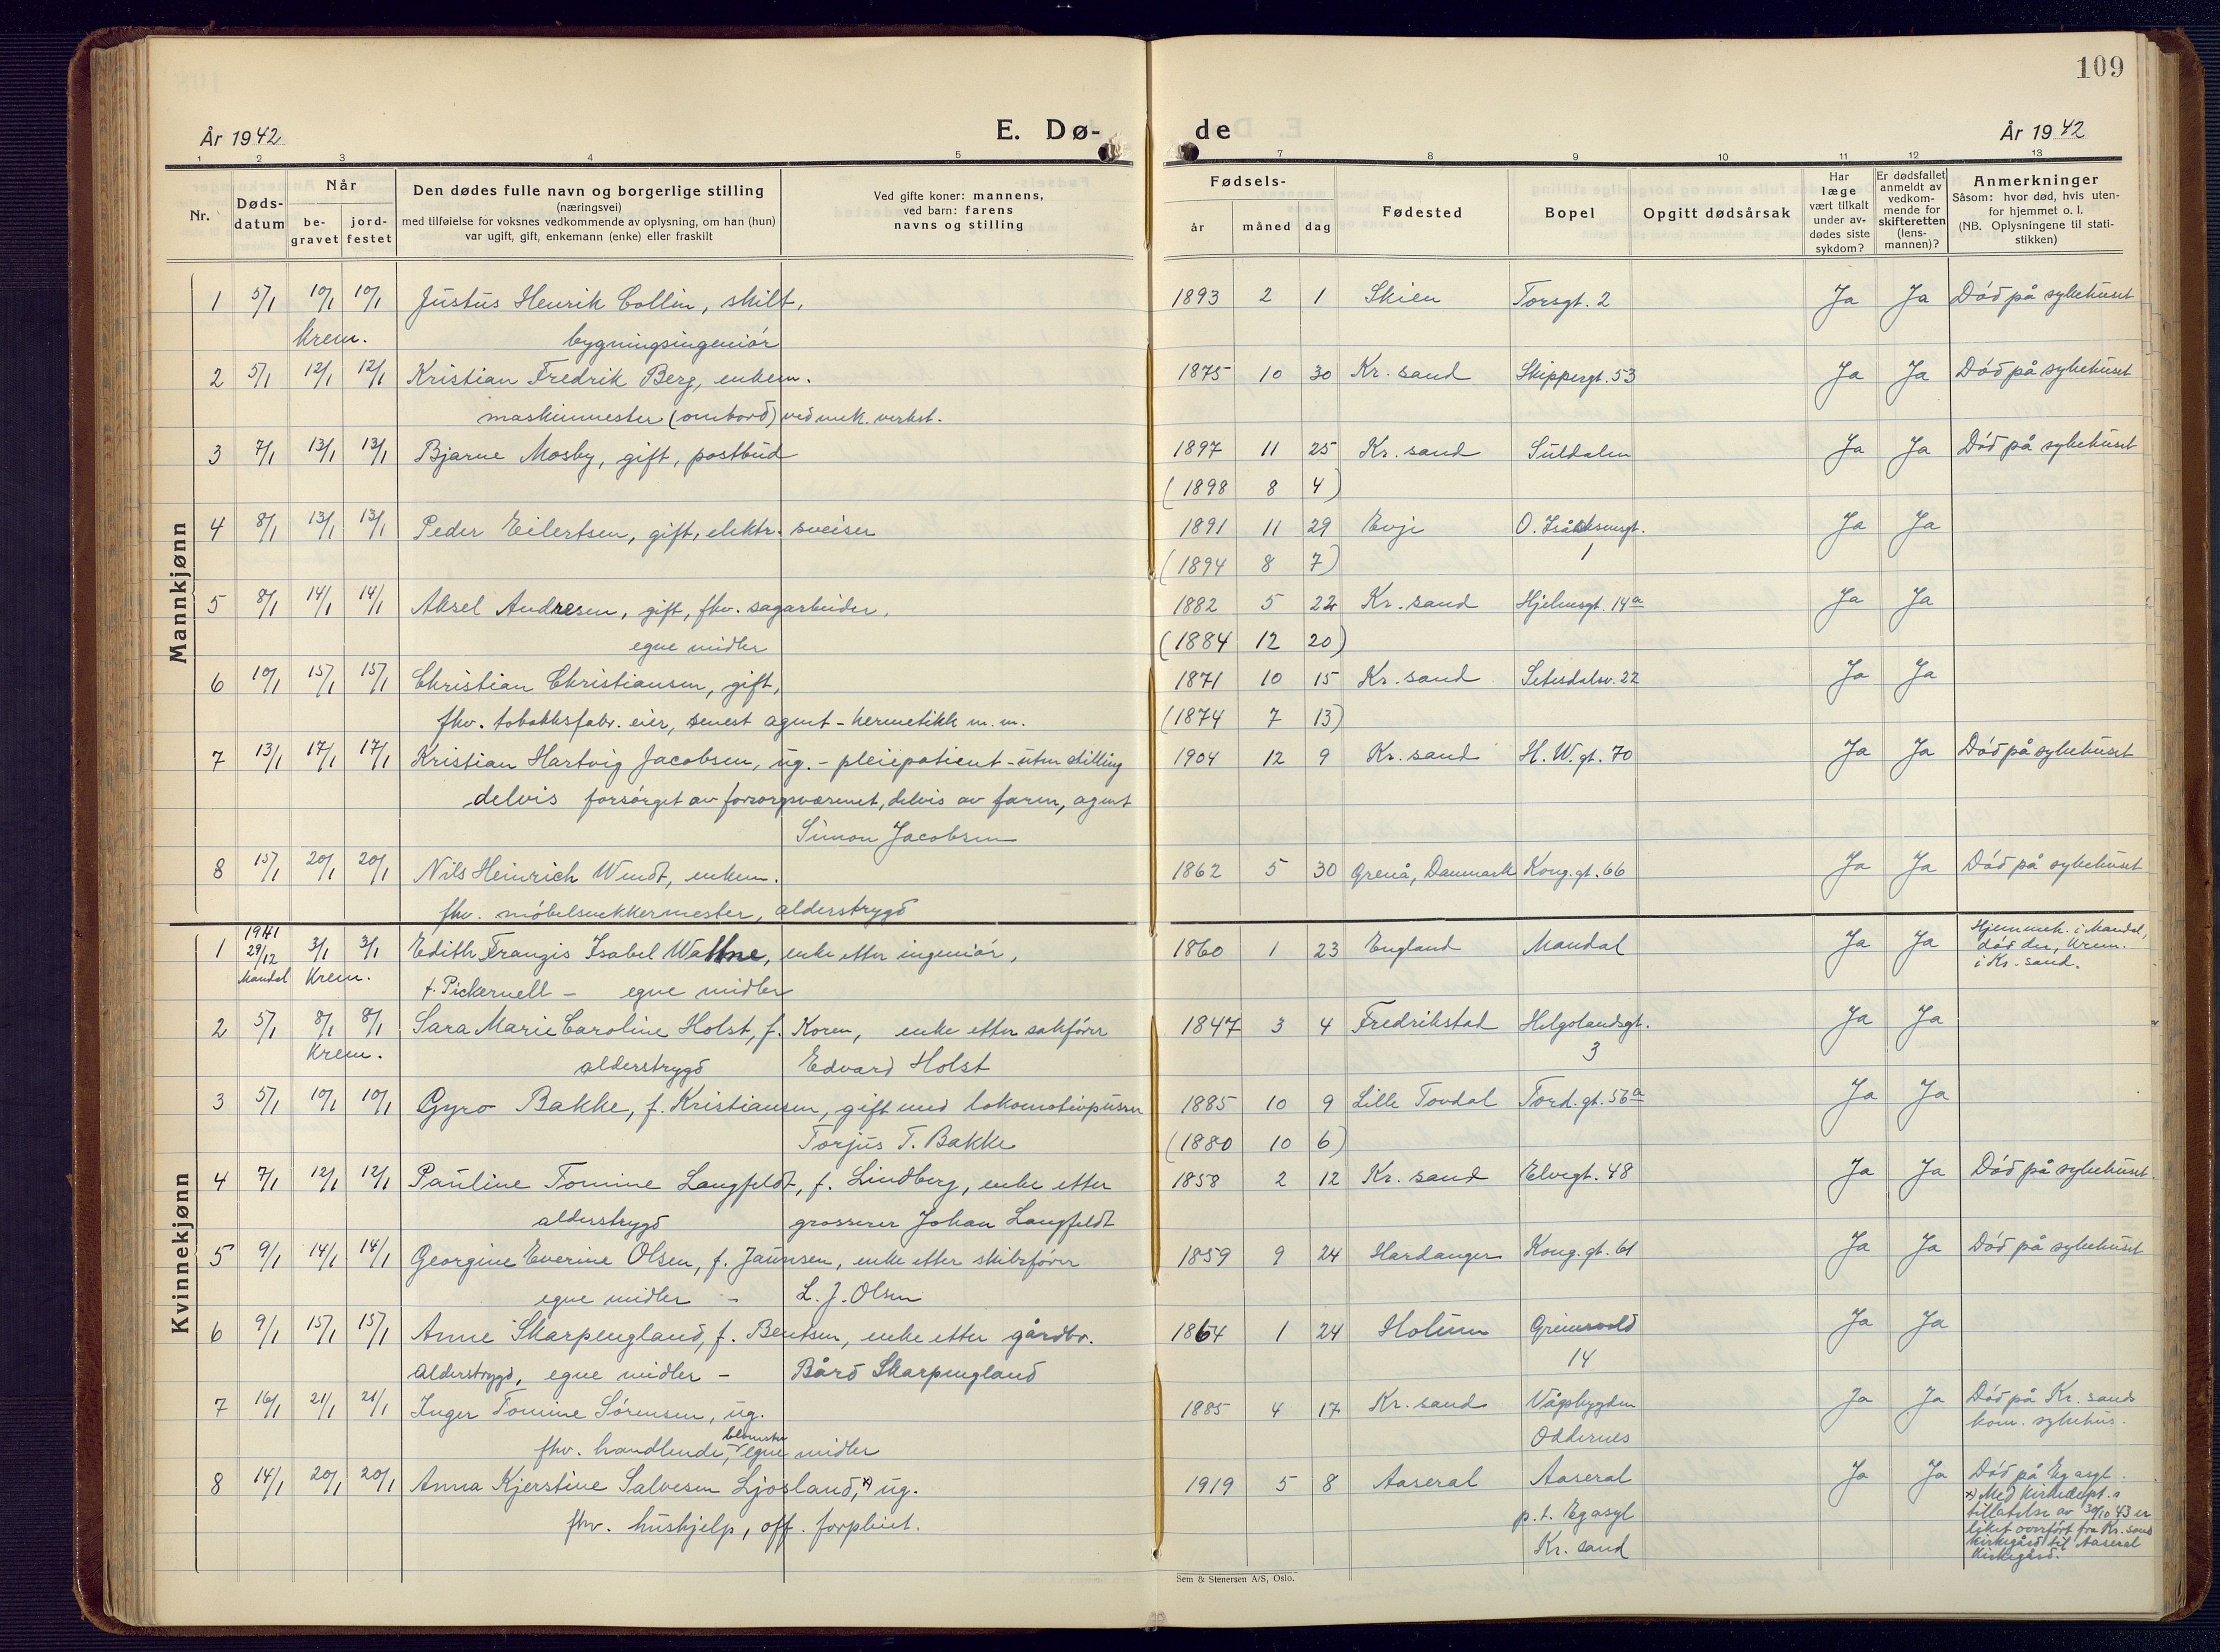 109
År 1942 E. Dø- de År 1942
1 2 3 4 5 7 8 9 10 11 12 13
Nr.
Døds-
datum
Når
be-
gravet
jord-
festet
Den dødes fulle navn og borgerlige stilling
(næringsvei)
med tilføielse for voksnes vedkommende av oplysning, om han (hun)
var ugift, gift, enkemann (enke) eller fraskilt
Ved gifte koner: mannens,
ved barn: farens
navns og stilling
Fødsels-
år måned dag
Fødested
Bopel
Opgitt dødsårsak
Har
læge
vært tilkalt
under av-
dødes siste
sykdom?
Er dødsfallet
anmeldt av
vedkom-
mende for
skifteretten
(lens-
mannen)?
Anmerkninger
Såsom: hvor død, hvis uten-
for hjemmet o. l.
(NB. Oplysningene til stati-
stikken)
Mannkjønn
1 5/1 10/1 10/1 Justus Henrik Collin, skilt, 1893 2 1 Skien Torsgt. 2 Ja Ja Död på sykehuset
Krem. bygningsingeniör
2 5/1 12/1 12/1 Kristian Fredrik Berg, enkem. 1875 10 30 Kr. sand Skippergt. 53 Ja Ja Död på sykehuset
maskinmester (ombord) ved mek. verkst.
3 7/1 13/1 13/1 Bjarne Mosby, gift, postbud 1897 11 25 Kr. sand Suldalen Ja Ja Död på sykehuset
(1898 8 4)
4 8/1 13/1 13/1 Peder Eilertsen, gift, elektr. sveiser 1891 11 29 Evje O. Isaachsensgt. Ja Ja
1
(1894 8 7)
5 8/1 14/1 14/1 Aksel Andresen, gift, fhv. sagarbeider, 1882 5 22 Kr. sand Hjelmsgt. 14a Ja Ja
egne midler (1884 12 20)
6 10/1 15/1 15/1 Christian Christiansen, gift, 1871 10 15 Kr. sand Setesdalsv. 22 Ja Ja
fhv. tobakksfabr. eier, senest agent - hermetikk m. m. (1874 7 13)
7 13/1 17/1 17/1 Kristian Hartvig Jacobsen, ug. - pleiepatient - uten stilling 1904 12 9 Kr. sand H. W. gt. 70 Ja Ja Död på sykehuset
delvis forsörget av forsorgsvæsenet, delvis av faren, agent
Simon Jacobsen
8 15/1 20/1 20/1 Nils Heinrich Wendt, enkem. 1862 5 30 Grenå, Danmark Kong. gt. 66 Ja Ja Död på sykehuset
fhv. möbelsnekkermester, alderstrygd
Kvinnekjønn
1941
1 29/12 3/1 3/1 Edith Frangis Isabel Wattne, enke etter ingeniör, 1860 1 23 England Mandal Ja Ja Hjemmeh. i Mandal,
död der, Krem.
i Kr. sand.
Mandal Krem. f. Pickernell - egne midler
2 5/1 8/1 8/1 Sara Marie Caroline Holst, f. Koren, enke etter sakförer 1847 3 4 Fredrikstad Helgolandsgt. Ja Ja
3
Krem. alderstrygd Edvard Holst
3 5/1 10/1 10/1 Gyro Bakke, f. Kristiansen, gift med lokomotivpusser 1885 10 9 Lille Tovdal Tord. gt. 56a Ja Ja
Torjus T. Bakke (1880 10 6)
4 7/1 12/1 12/1 Pauline Tomine Langfeldt, f. Lindberg, enke etter 1858 2 12 Kr. sand Elvegt. 48 Ja Ja Död på sykehuset
alderstrygd grosserer Johan Langfeldt
5 9/1 14/1 14/1 Georgine Everine Olsen, f. Jaunsen, enke etter skibsförer 1859 9 24 Hardanger Kong. gt. 61 Ja Ja Död på sykehuset
egne midler - L. J. Olsen
6 9/1 15/1 15/1 Anne Skarpengland, f. Bentsen, enke etter gårdbr. 1864 1 24 Holum Greinsvold Ja Ja
14
alderstrygd, egne midler - Bård Skarpengland
7 16/1 21/1 21/1 Inger Tomine Sörensen, ug. 1885 4 17 Kr. sand Vågsbygden Ja Ja Död på Kr. sands
kom. sykehus.
Oddernes
fhv. handlende, blomster egne midler
8 14/1 20/1 20/1 Anna Kjerstine Salvesen Ljosland, x) ug. 1919 5 8 Aaseral Aaseral Ja Ja Död på Eg asyl.
fhv. hushjelp, off. forpleiet. p. t. Eg asyl
Kr. sand
x) Med kirkedept.s
tillatelse av 30/10 43 er
liket overfört fra Kr. sand
kirkegård til Aaseral
kirkegård.
Sem & Stenersen A/S, Oslo.